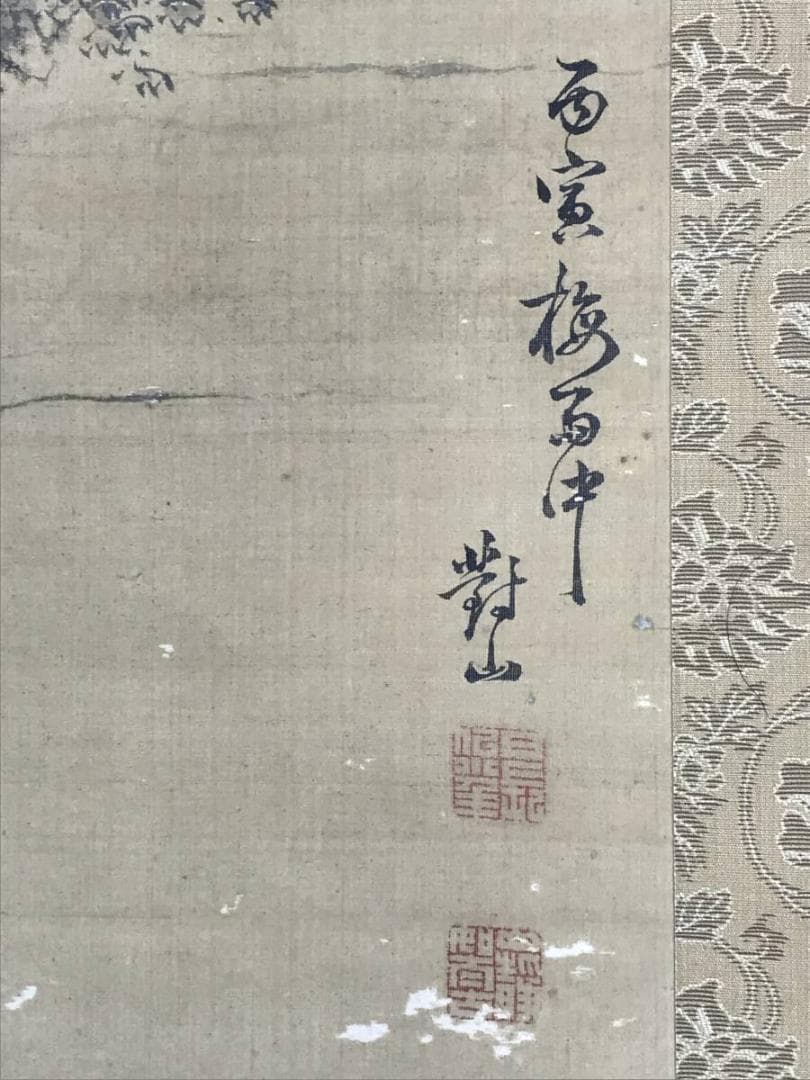 丙寅梅雨中
對山